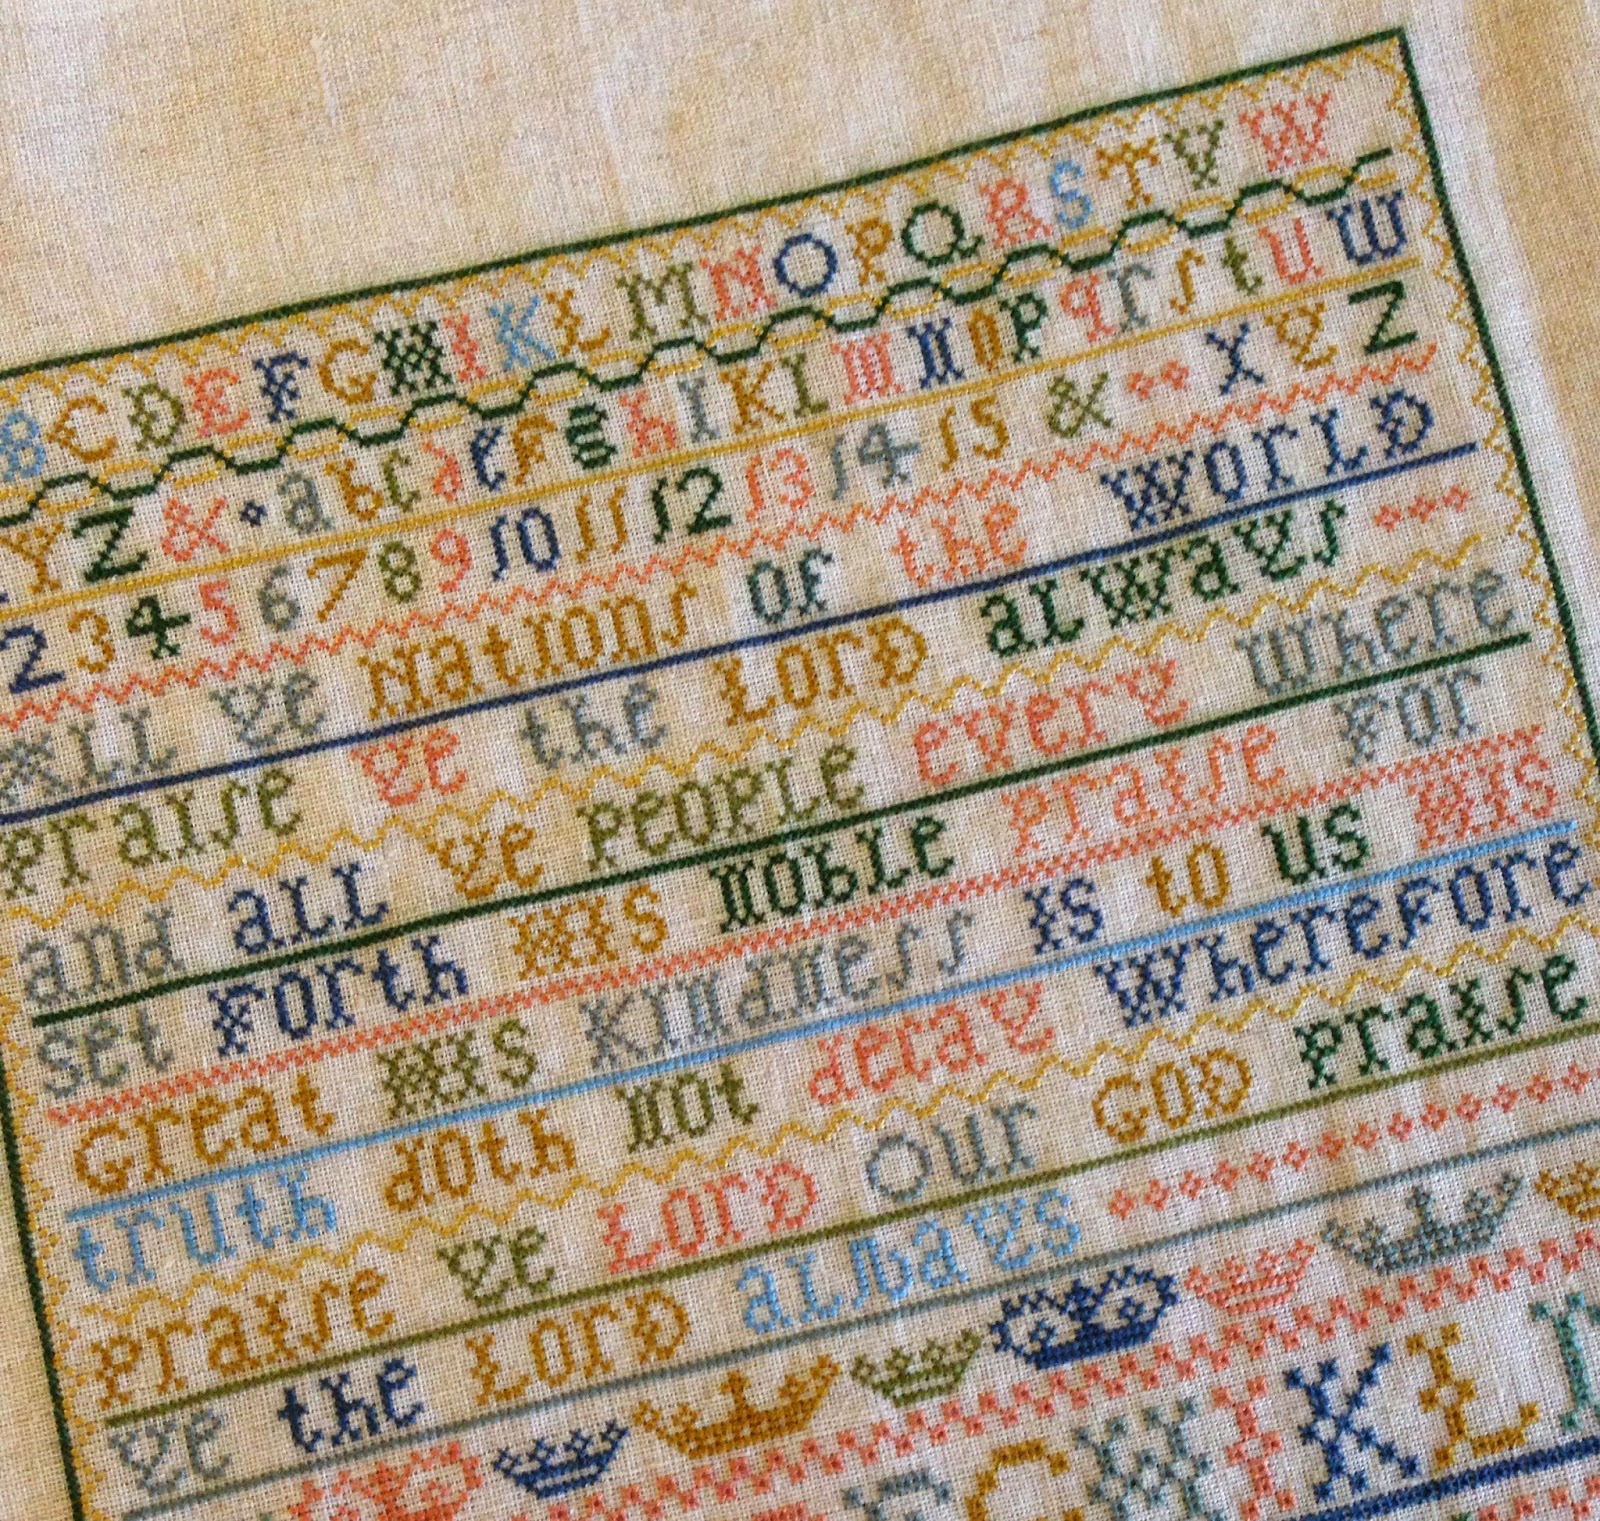 B C D E F G H I K L M N O P Q R S T V W
Y Z & a b c d e f g h i k l m n o p q r ſ t u w
2 3 4 5 6 7 8 9 10 11 12 13 14 15 & X Y Z
All Ye Nationſ of the World
Praiſe Ye the Lord alwayſ
and all Ye People every Where
set Forth His Noble Praiſe For
Great His Kindneſſ Is to us His
truth doth Not decay Wherefore
Praiſe Ye Lord Our God Praiſe
Ye the Lord always
G H I K L